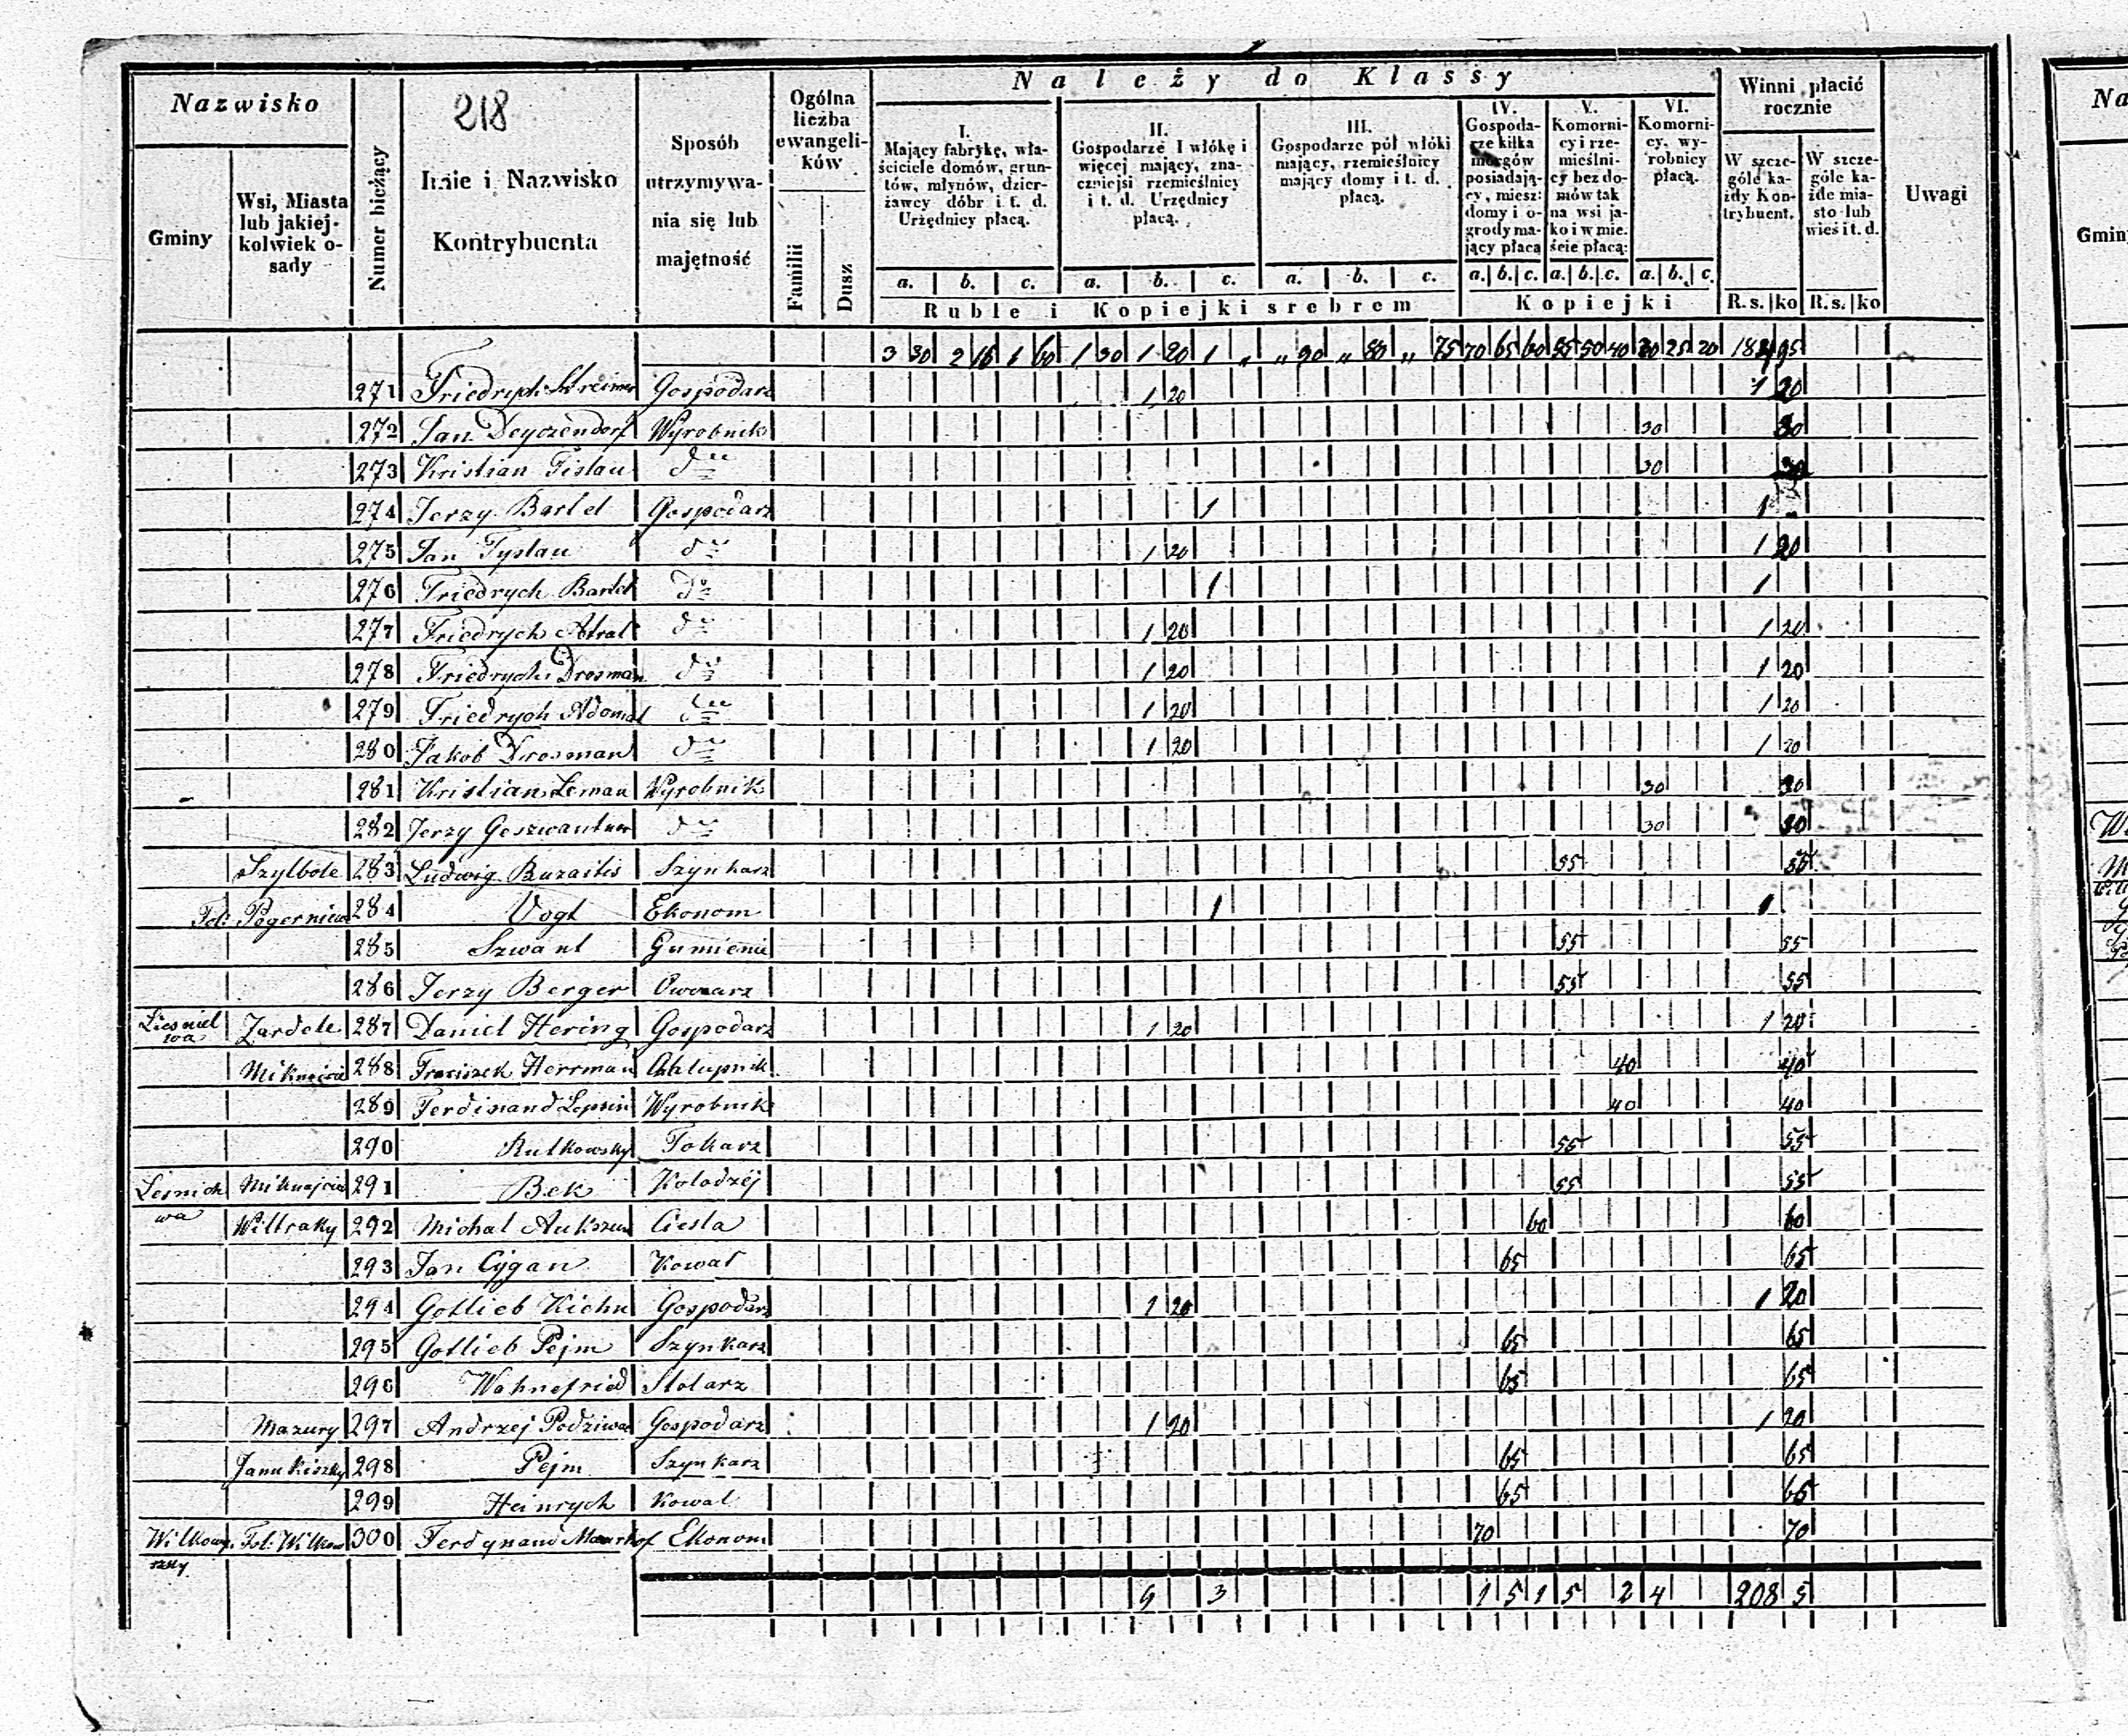 Należy do Klassy
Nazwisko
218
Gminy
Wsi, Miasta lub jakiej-kolwiek o-sady
Numer bieżący
Imie i Nazwisko Kontrybuenta
Sposób utrzymywa-nia się lub majętność
Ogólna liczba ewangeli-ków
Familii
Dusz
I. Mający fabrykę, wła-ściciele domów, grun-tów, młynów, dzier-żawcy dóbr i t. d. Urzędnicy płacą.
II. Gospodarze I włókę i więcej mający, zna-czniejsi rzemieślnicy i t. d. Urzędnicy płacą.
III. Gospodarze pół włóki mający, rzemieślnicy mający domy i t. d. płacą.
IV. Gospoda-rze kilka morgów posiadają-cy, miesz: domy i o-grody ma-jący płacą
V. Komorni-cy i rze-mieślni-cy bez do-mów tak na wsi ja-ko i w mie-ście płacą:
VI. Komorni-cy, wy-robnicy płacą.
Winni płacić rocznie
W szcze-góle ka-żdy Kon-trybuent.
W szcze-góle ka-żde mia-sto lub wieś i t. d.
Uwagi
a. b. c. a. b. c. a. b. c. a. b. c. a. b. c. a. b. c.
Ruble i Kopiejki srebrem Kopiejki R. s. ko R. s. ko
3 30 2 15 1 60 1 30 1 20 1 „ „ 90 „ 80 „ 75 70 65 60 55 50 40 30 25 20 95
271 Friedrych Gospodarz 1 20 1 20
272 Jan Deyczendorf Wyrobnik 30 30
273 Kristian Tislau dtto 30 30
274 Jerzy Bartel Gospodarz 1 1
275 Jan Tyslau dtto 1 20 1 20
276 Friedrych Bartel dto 1 1
277 Friedrych dtto 1 20 1 20
278 Friedrych Drosman dtto 1 20 1 20
279 Friedrych Adomat dtto 1 20 1 20
280 Jakob Drosman dtto 1 20 1 20
281 Kristian Leman Wyrobnik 30 30
282 Jerzy dtto 30 30
Szylbole 283 Ludwig Buraitis Szynkarz 55 55
Fol: 284 Vogt Ekonom 1 1
285 Szwant Gumienny 55 55
286 Jerzy Berger Owczarz 55 55
Zardele 287 Daniel Hering Gospodarz 1 20 1 20
288 Franciszek Herrman Chłupnik 40 40
289 Ferdinand Wyrobnik 40 40
290 Rutkowsky Tokarz 55 55
291 Bek Kolodzéj 55 55
Wiltraky 292 Michał Ciesla 60 60
293 Jan Cygan Kowal 65 65
294 Gotlieb Kiehn Gospodarz 1 20 1 20
295 Gotlieb Pejm Szynkarz 65 65
296 Wahnefried Stolarz 65 65
Mazury 297 Andrzej Gospodarz 1 20 1 20
Janukiszky 298 Pejm Szynkarz 65 65
299 Heinrych Kowal 65 65
Fol: 300 Ferdynand Ekonom 70 70
9 3 1 5 1 5 2 4 208 5
Na
Gmin